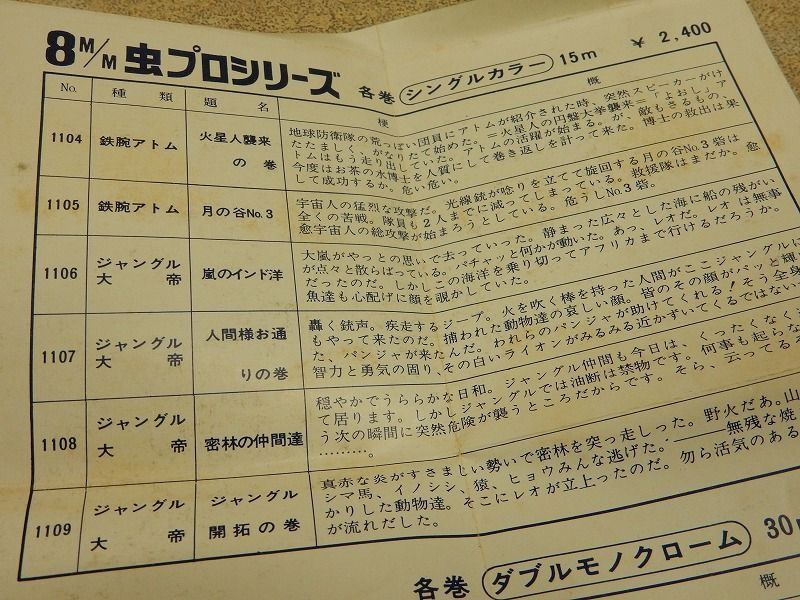 8M/M 虫プロシリーズ 各巻 シングルカラー 15m ¥ 2,400
No. 種類 題名 梗 概
1104 鉄腕アトム 火星人襲来の巻
地球防衛隊の荒っぽい団員にアトムが紹介された時、突然スピーカーがけ
たたましく、がなりたて始めた。=火星人の円盤大挙襲来=「よおし」ア
トムはもう走り出していた。アトムの活躍が始まる。が、敵もさるもの、
今度はお茶の水博士を人質にして巻き返しを計って来た。博士の救出は果
して成功するか。危い危い。
1105 鉄腕アトム 月の谷No.3
宇宙人の猛烈な攻撃だ。光線銃が唸りを立てて旋回する月の谷No.3 砦は
全くの苦戦。隊員も2人までに減ってしまっている。救援隊はまだか。愈
愈宇宙人の総攻撃が始まろうとしている。危うしNo.3 砦。
1106 ジャングル大帝 嵐のインド洋
大嵐がやっとの思いで去っていった。静まった広々とした海に船の残がい
が点々と散らばっている。パチャッと何かが動いた。あっ、レオだ。レオ は無事
だったのだ。しかしこの海洋を乗り切ってアフリカまで行けるだろうか。
魚達も心配げに顔を覗かしていた。
1107 ジャングル大帝 人間様お通りの巻
轟く銃声。疾走するジープ。火を吹く棒を持った人間がここジャングルに
もやって来たのだ。捕われた動物達の哀しい顔。皆のその顔がパッと輝い
た、パンジャが来たんだ。われらのパンジャが助けてくれる!そう全身
智力と勇気の固り、その白いライオンがみるみる近かずいてくるではない
1108 ジャングル大帝 密林の仲間達
穏やかでうららかな日和。ジャングル仲間も今日は、くったくなく
て居ります。しかしジャングルでは油断は禁物です。何事も起らな
う次の瞬間に突然危険が襲うところだからです。そら、云ってるそ
………。
1109 ジャングル大帝 ジャングル開拓の巻
真赤な炎がすさまじい勢いで密林を突っ走しった。野火だあ。山
シマ馬、イノシシ、猿、ヒョウみんな逃げた。――無残な焼
かりした動物達。そこにレオが立上ったのだ。勿ら活気のある
が流れだした。
各巻 ダブルモノクローム 30
概